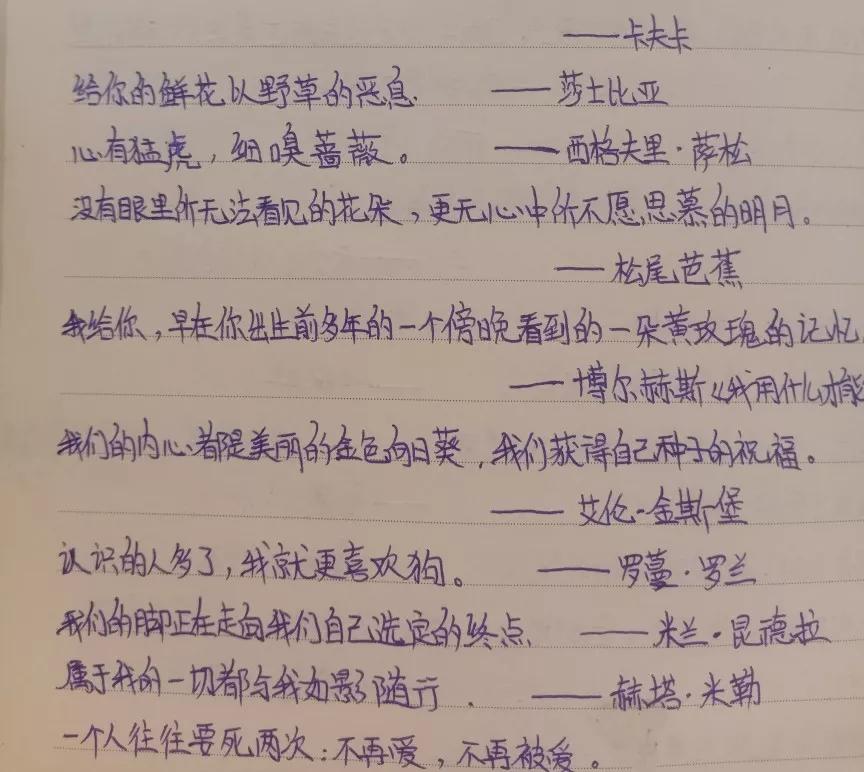 ——卡夫卡
给你的鲜花以野草的恶息. ——莎士比亚
心有猛虎，细嗅蔷薇。 ——西格夫里·萨松
没有眼里所无法看见的花朵，更无心中所不愿思慕的明月。
——松尾芭蕉
我给你，早在你出生前多年的一个傍晚看到的一朵黄玫瑰的记忆.
——博尔赫斯《我用什么才能
我们的内心都是美丽的金色向日葵，我们获得自己种子的祝福。
——艾伦-金斯堡
认识的人多了，我就更喜欢狗。 ——罗蔓·罗兰
我们的脚正在走向我们自己选定的终点. ——米兰·昆德拉
属于我的一切都与我如影随行. ——赫塔·米勒
一个人往往要死两次：不再爱，不再被爱。